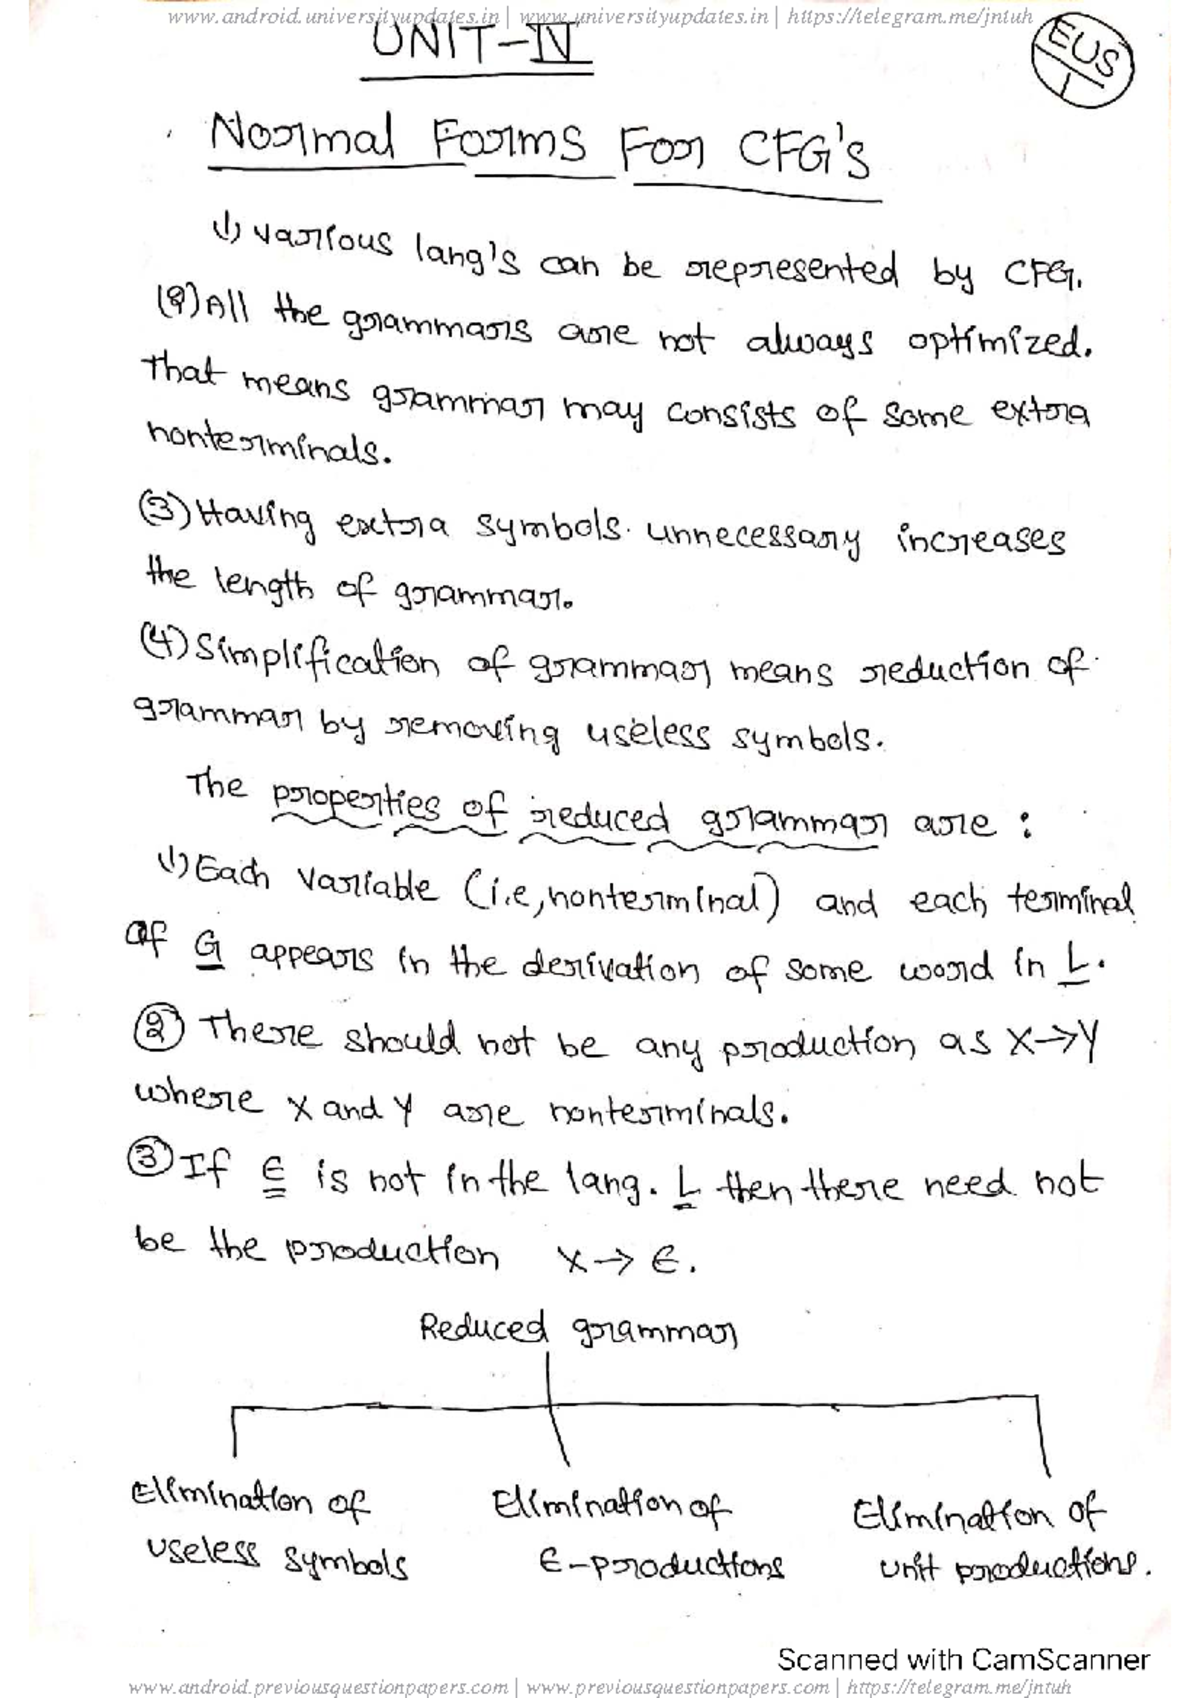 www.android.universityupdates.in | www.universityupdates.in | https://telegram.me/jntuh
UNIT-IV
EUS
1
Normal Forms For CFG's
(1) various lang's can be represented by CFG.
(2) All the grammars are not always optimized.
That means grammar may consists of some extra
nonterminals.
(3) Having extra symbols unnecessary increases
the length of grammar.
(4) Simplification of grammar means reduction of
grammar by removing useless symbols.
The properties of reduced grammar are :
(1) Each variable (i.e, nonterminal) and each terminal
of G appears in the derivation of some word in L.
(2) There should not be any production as X→Y
where X and Y are nonterminals.
(3) If ∈ is not in the lang. L then there need not
be the production X→ ∈.
Reduced grammar
Elimination of
useless symbols
Elimination of
∈-productions
Elimination of
unit productions.
Scanned with CamScanner
www.android.previousquestionpapers.com | www.previousquestionpapers.com | https://telegram.me/jntuh